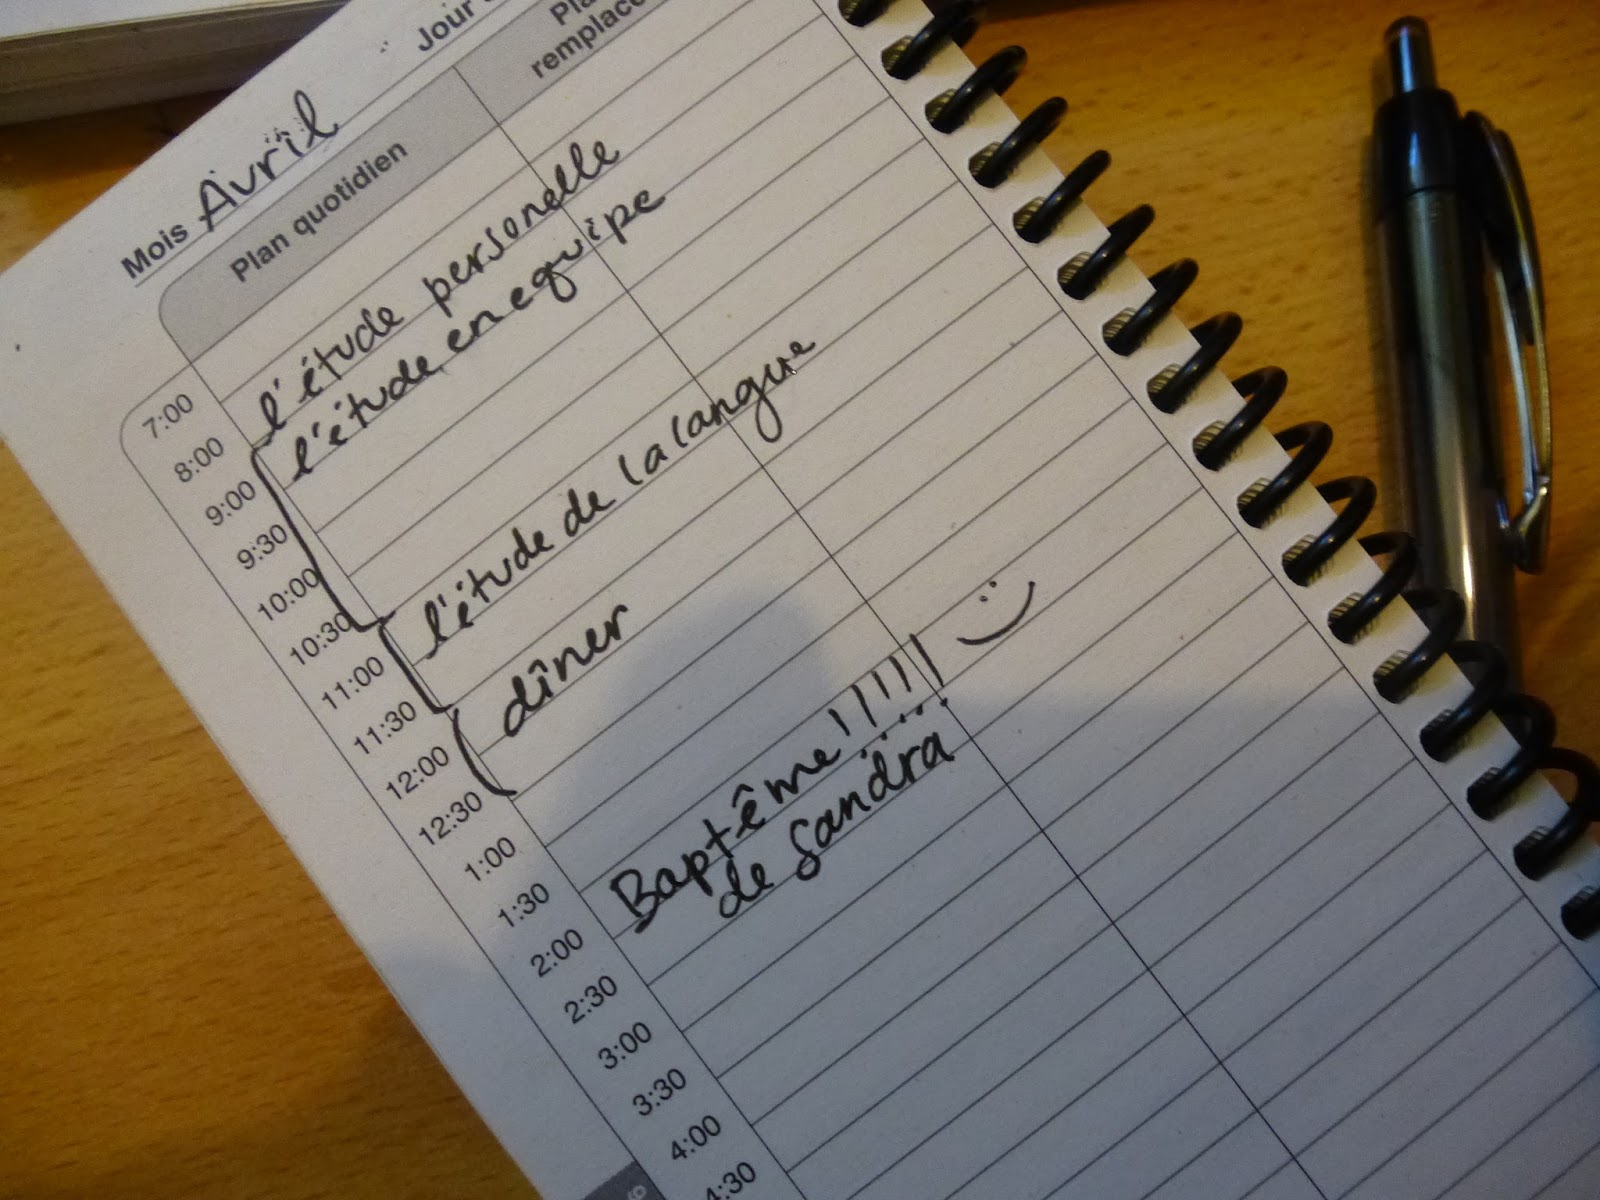 Mois Avril
Jour
Plan quotidien
remplace
7:00
8:00 l'étude personelle
9:00 l'étude en equipe
9:30
10:00
10:30
11:00 l'étude de la langue
11:30
12:00 dîner
12:30
1:00
1:30
2:00 Baptême!!!!!
2:30 de Sandra
3:00
3:30
4:00
4:30